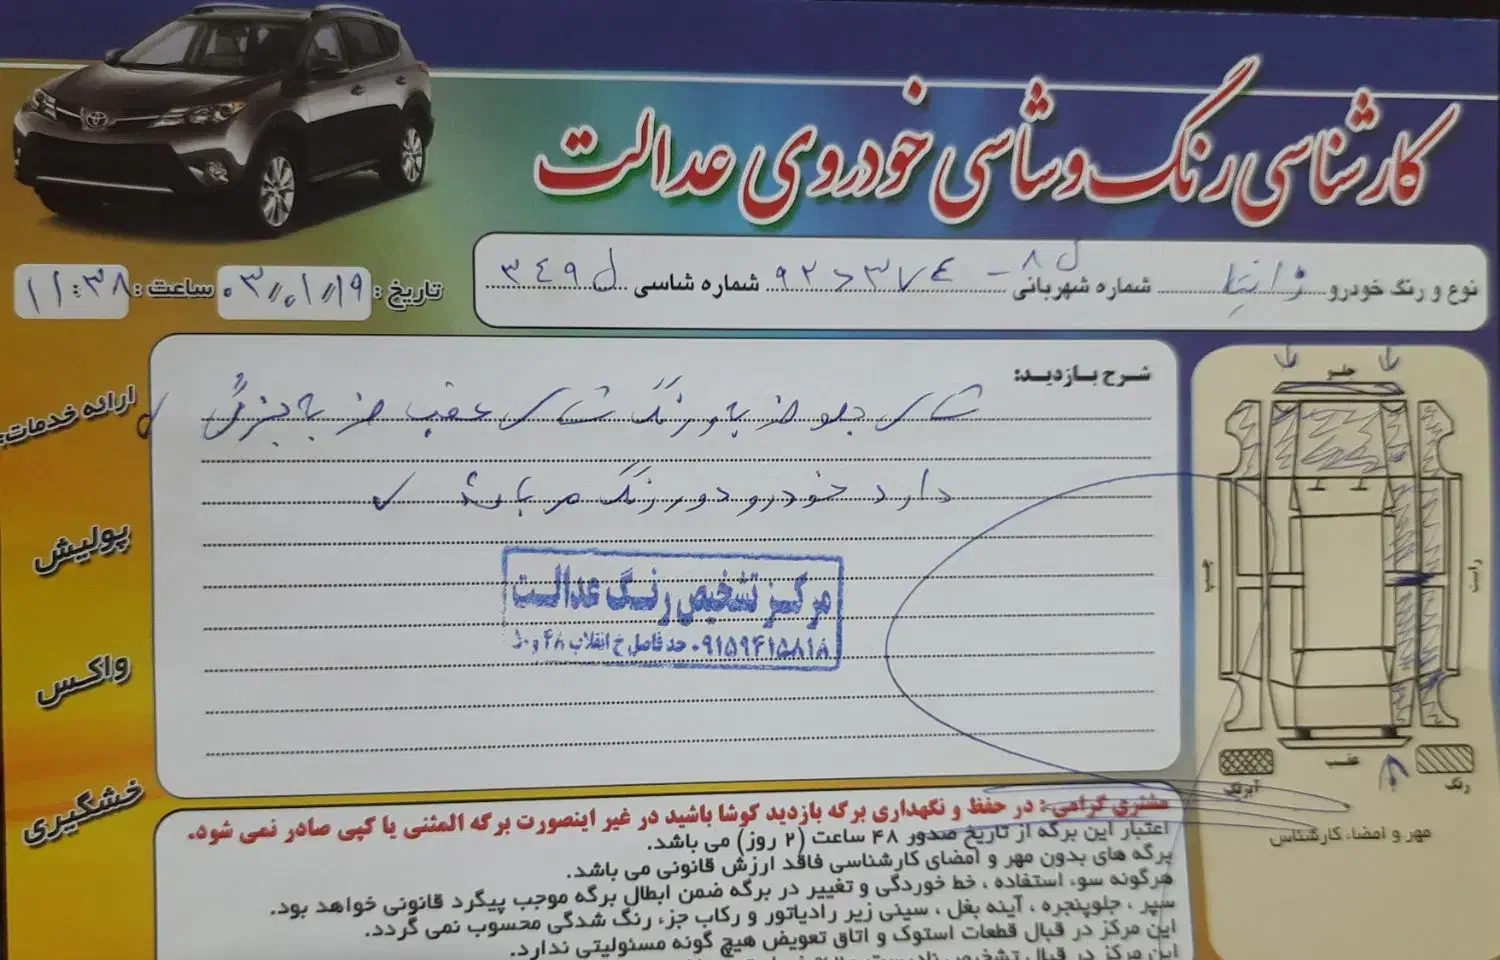 کارشناسی رنگ و شاسی خودروی عدالت
نوع و رنگ خودرو زانتیا شماره شهربانی ۸ ل - ۹۲ د ۳۷۴ شماره شاسی ۳۴۹ ل
تاریخ : ۰۳/۰۱/۱۹ ساعت : ۱۱:۳۸
ارائه خدمات:
پولیش
واکس
خشگیری
شرح بازدید:
شاسی جلو ضربه و رنگ شاسی عقب ضربه بزرگ
دارد خودرو دور رنگ می باشد
مرکز تشخیص رنگ عدالت
۰۹۱۵۹۴۱۵۸۱۸ حد فاصل خ انقلاب ۴۸ و ۵۰
جلو
چپ
راست
عقب
آبرنگ
رنگ
مهر و امضاء کارشناس
مشتری گرامی : در حفظ و نگهداری برگه بازدید کوشا باشید در غیر اینصورت برگه المثنی یا کپی صادر نمی شود.
اعتبار این برگه از تاریخ صدور ۴۸ ساعت (۲ روز) می باشد.
برگه های بدون مهر و امضای کارشناسی فاقد ارزش قانونی می باشد.
هرگونه سوء استفاده ، خط خوردگی و تغییر در برگه ضمن ابطال برگه موجب پیگرد قانونی خواهد بود.
سپر ، جلوپنجره ، آینه بغل ، سینی زیر رادیاتور و رکاب جزء رنگ شدگی محسوب نمی گردد.
این مرکز در قبال قطعات استوک و اتاق تعویض هیچ گونه مسئولیتی ندارد.
این مرکز در قبال تشخیص نادرست